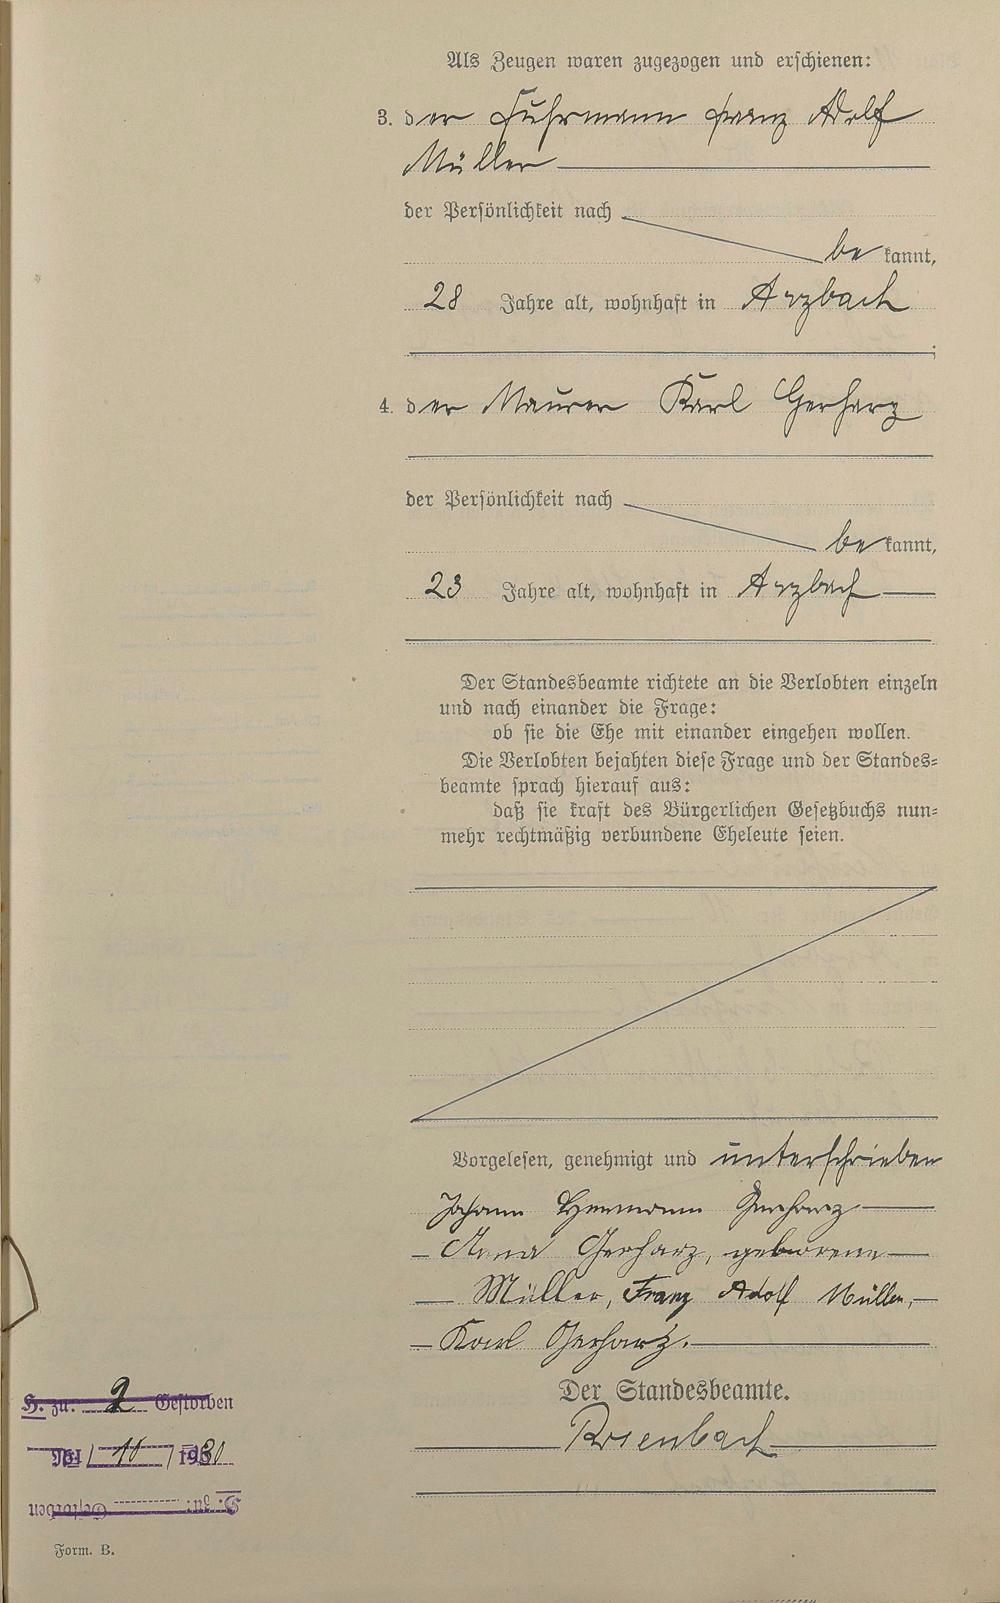 Als Zeugen waren zugezogen und erschienen:
3. der Fuhrmann Franz Adolf
Müller
der Persönlichkeit nach
bekannt,
28 Jahre alt, wohnhaft in Arzbach
;
4. der Maurer Karl Gerharz
der Persönlichkeit nach
bekannt,
23 Jahre alt, wohnhaft in Arzbach
Der Standesbeamte richtete an die Verlobten einzeln
und nach einander die Frage:
ob sie die Ehe mit einander eingehen wollen.
Die Verlobten bejahten diese Frage und der Standes=
beamte sprach hierauf aus:
daß sie kraft des Bürgerlichen Gesetzbuchs nun=
mehr rechtmäßig verbundene Eheleute seien.
Vorgelesen, genehmigt und unterschrieben
Johann Hermann Gerharz
Anna Gerharz, geborene
Müller, Franz Adolf Müller,
Karl Gerharz.
Der Standesbeamte.
Rosenbach
H. zu: 2 Gestorben
10 / 1930
S. zu: Gestorben
Form. B.